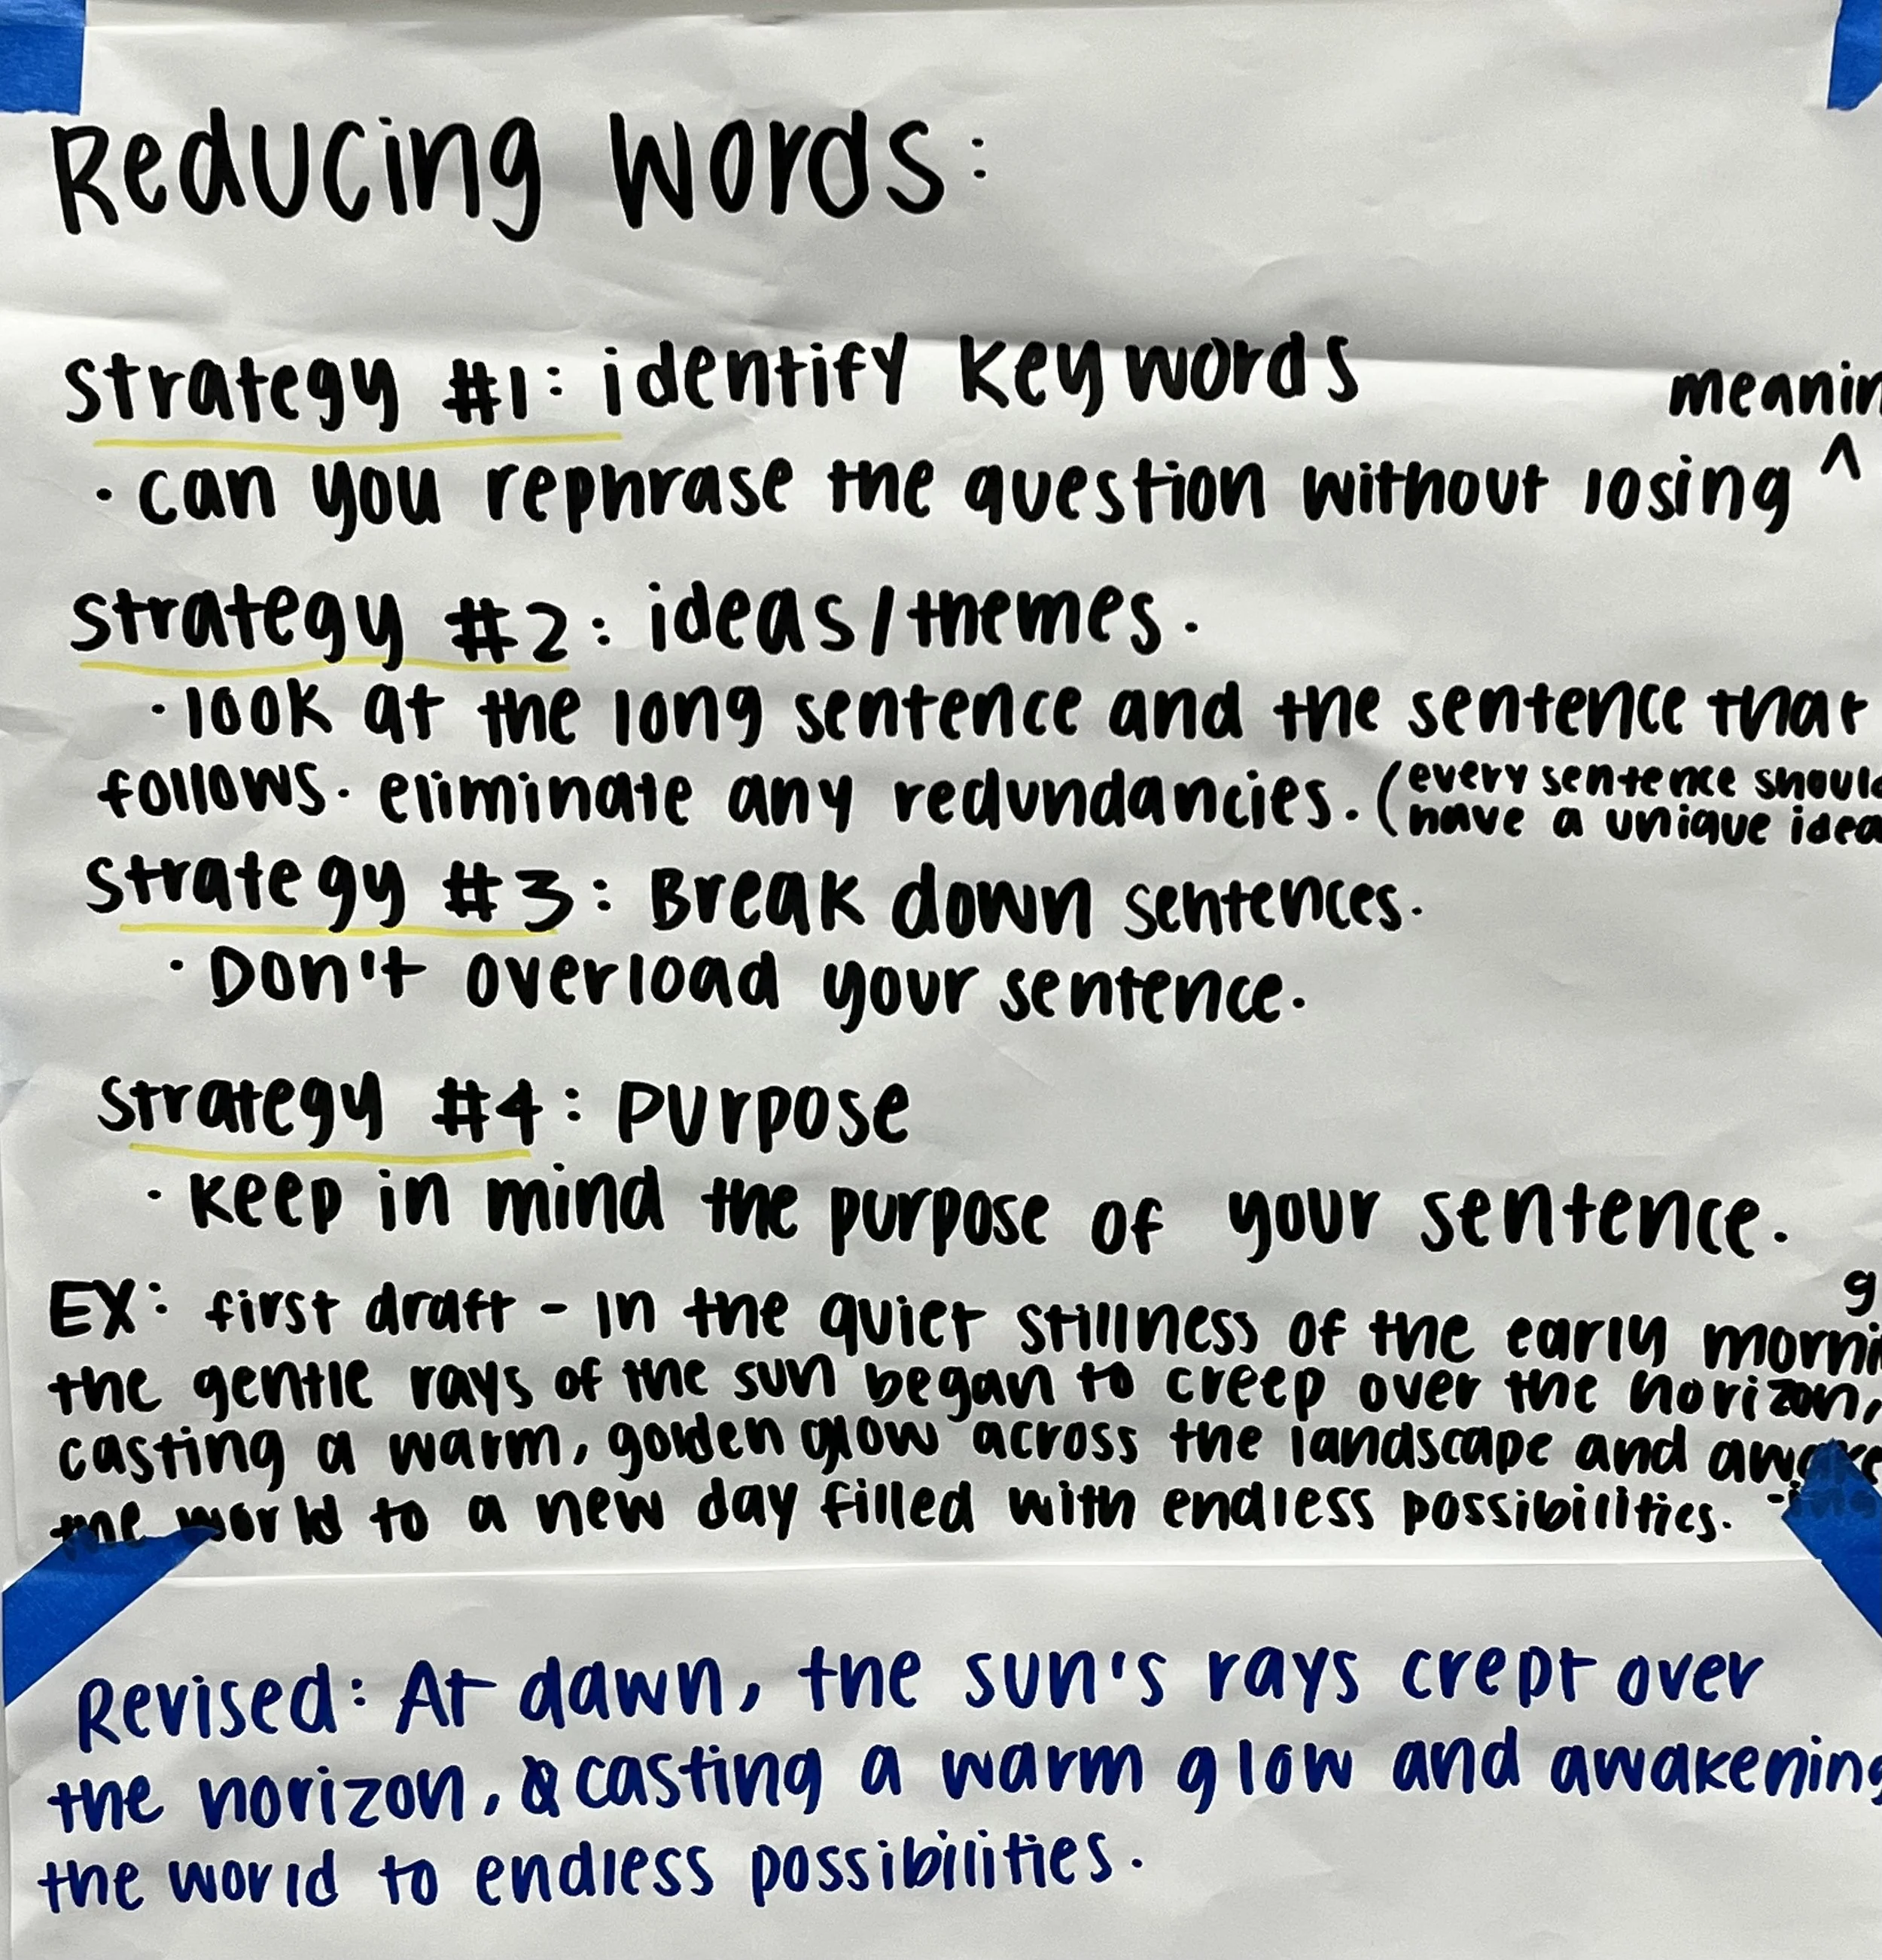 Reducing words:
Strategy #1: identify keywords
meanin
• can you rephrase the question without losing ^
Strategy #2: ideas/themes.
• look at the long sentence and the sentence that
follows. eliminate any redundancies. (every sentence should
have a unique idea
Strategy #3: Break down sentences.
• Don't overload your sentence.
Strategy #4: Purpose
• Keep in mind the purpose of your sentence.
EX: first draft - In the quiet stillness of the early morni
g
the gentle rays of the sun began to creep over the horizon,
casting a warm, golden glow across the landscape and awake
-ing
the world to a new day filled with endless possibilities.
Revised: At dawn, the sun's rays crept over
the horizon, casting a warm glow and awakening
the world to endless possibilities.